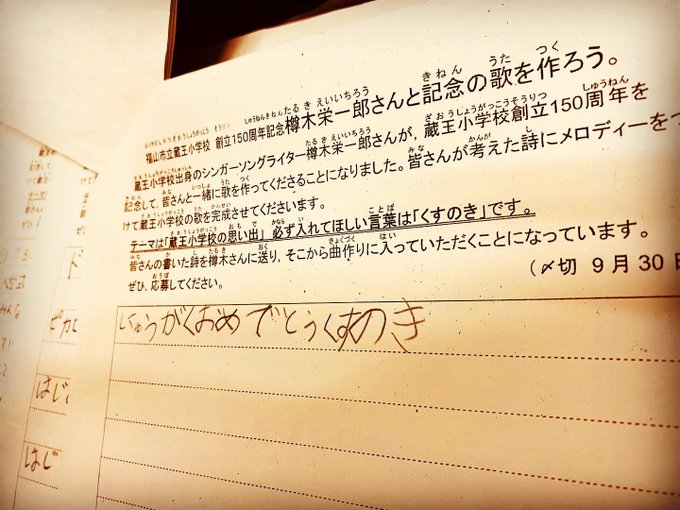 樽木栄一郎さんと記念の歌を作ろう。
福山市立蔵王小学校 創立150周年記念
蔵王小学校出身のシンガーソングライター樽木栄一郎さんが，蔵王小学校創立150周年を
記念して，皆さんと一緒に歌を作ってくださることになりました。皆さんが考えた詩にメロディーをつ
けて蔵王小学校の歌を完成させてくださいます。
テーマは「蔵王小学校の思い出」必ず入れてほしい言葉は「くすのき」です。
皆さんの書いた詩を樽木さんに送り，そこから曲作りに入っていただくことになっています。
ぜひ，応募してください。
（〆切 9月30日
にゅうがくおめでとうくすのき
ピカ
はじ
はじ